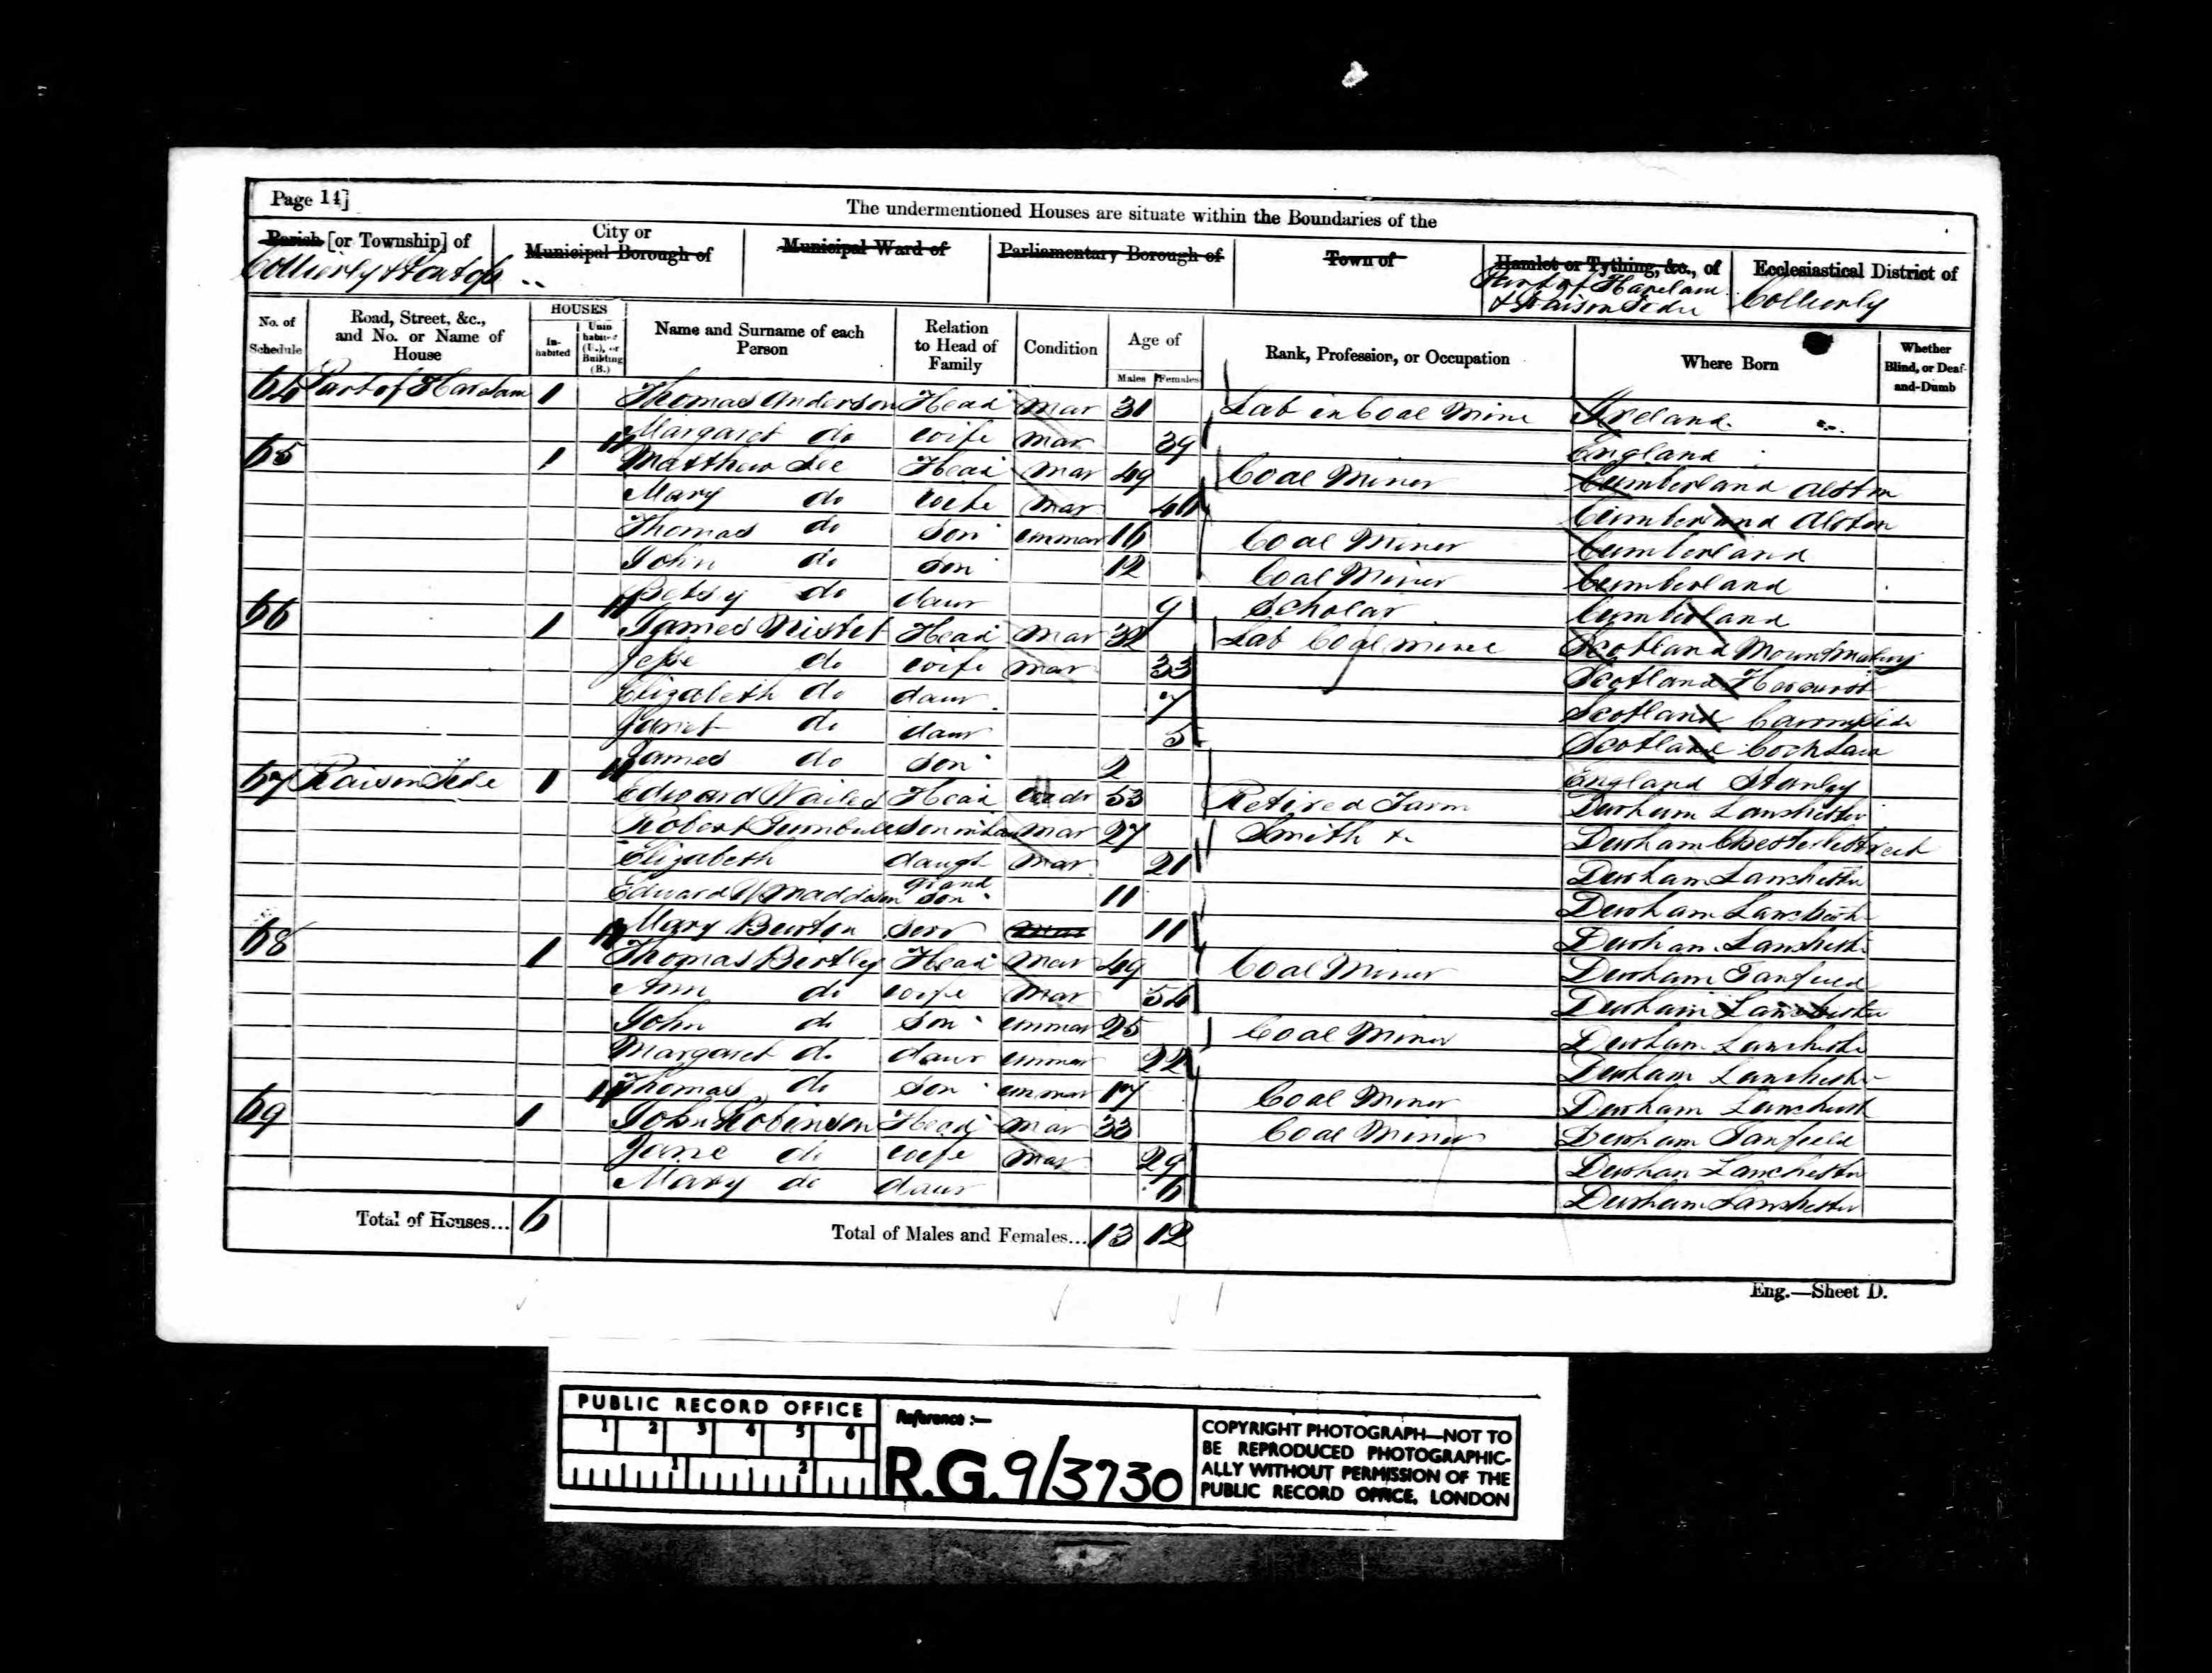 Page 14]
The undermentioned Houses are situate within the Boundaries of the
Parish [or Township] of
City or Municipal Borough of
Municipal Ward of
Parliamentary Borough of
Town of
Hamlet or Tything, &c., of
Ecclesiastical District of
Part of Harelam
Collierly
No. of Schedule
Road, Street, &c., and No. or Name of House
HOUSES
In-habited
Unin habited (U.), or Building (B.)
Name and Surname of each Person
Relation to Head of Family
Condition
Age of
Males
Females
Rank, Profession, or Occupation
Where Born
Whether Blind, or Deaf-and-Dumb
64 Part of Harelam 1 Thomas Anderson Head Mar 31 Lab in Coal Mine Ireland
Margaret do wife Mar 39 England
65 1 Matthew Lee Head Mar 49 Coal Miner Cumberland Alston
Mary do wife Mar 46 Cumberland Alston
Thomas do Son unmar 16 Coal Miner Cumberland
John do Son 12 Coal Miner Cumberland
Betsy do daur 9 Scholar Cumberland
66 1 James Nisbet Head Mar 32 Lab Coal mine Scotland
Jesse do wife Mar 33 Scotland
Elizabeth do daur 7 Scotland
Janet do daur 5 Scotland
James do Son 2 England Stanley
67 Raison Side 1 Edward Head 53 Retired Farm Durham Lanchester
Robert Turnbull Son in law Mar 27 Smith Durham Chester le Street
Elizabeth daugt Mar 21 Durham Lanchester
Edward W Maddison grand Son 11 Durham Lanchester
Mary Burton Serv 11 Durham Lanchester
68 1 Thomas Bertley Head Mar 49 Coal Miner Durham Tanfield
Ann do wife Mar 54 Durham Lanchester
John do Son unmar 25 Coal Miner Durham Lanchester
Margaret do daur unmar 22 Durham Lanchester
Thomas do Son unmar 17 Coal Miner Durham Lanchester
69 1 John Robinson Head Mar 33 Coal Miner Durham Tanfield
Jane do wife Mar 29 Durham Lanchester
Mary do daur 6 Durham Lanchester
Total of Houses... 6
Total of Males and Females... 13 12
Eng.—Sheet D.
PUBLIC RECORD OFFICE
1 2 3 4 5 6
1 2
Reference :—
R.G. 9/3730
COPYRIGHT PHOTOGRAPH—NOT TO
BE REPRODUCED PHOTOGRAPHIC-
ALLY WITHOUT PERMISSION OF THE
PUBLIC RECORD OFFICE, LONDON